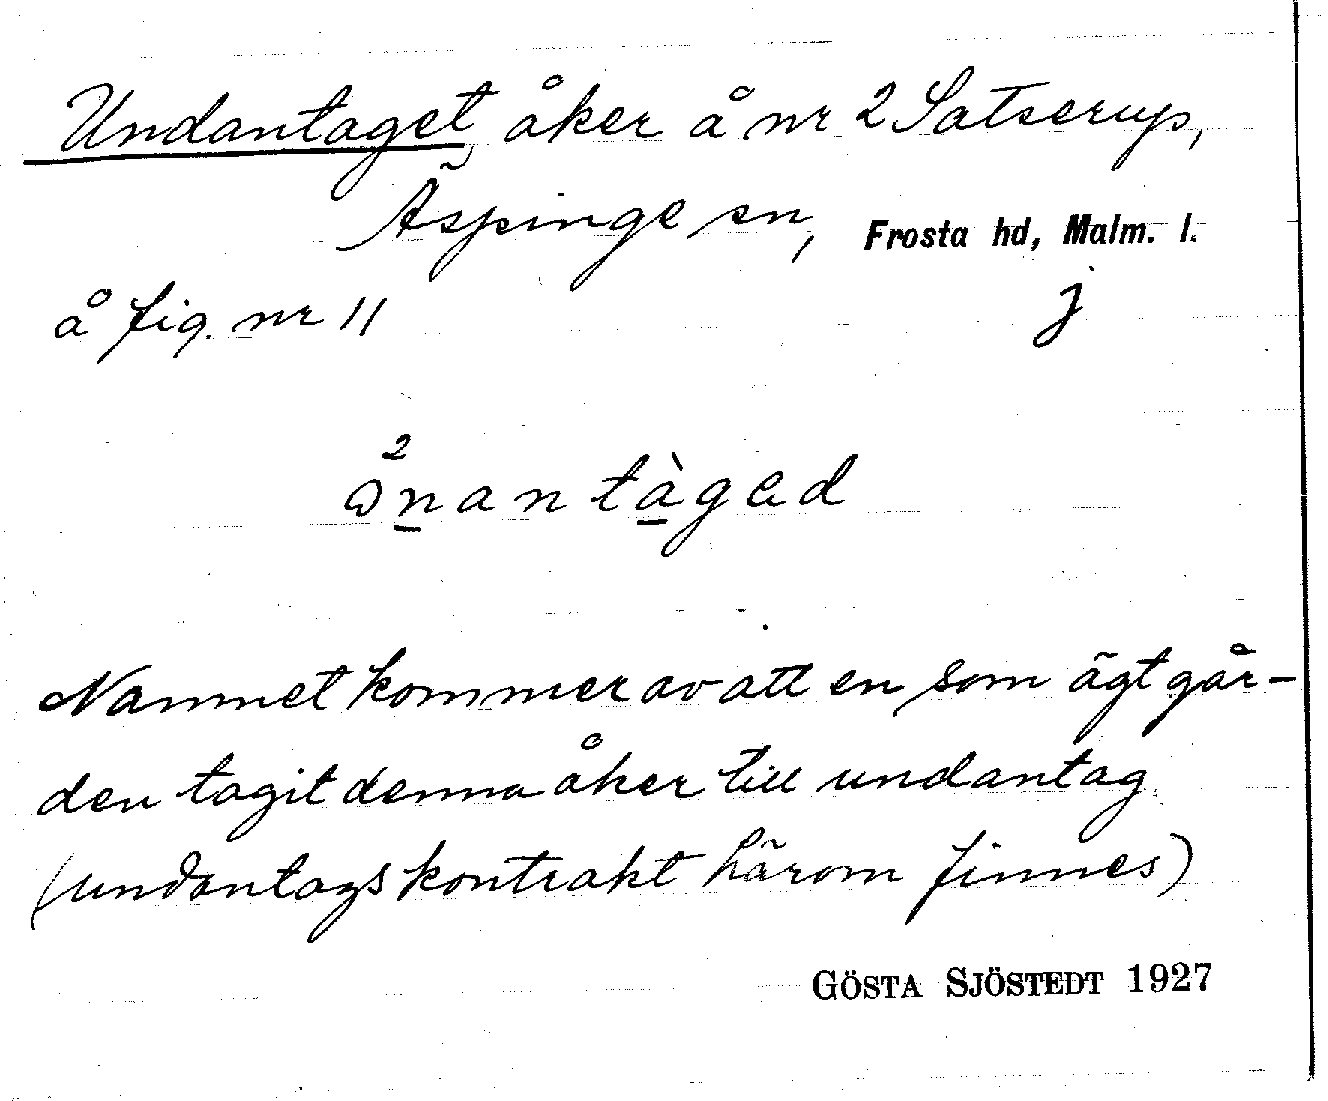 Undantaget, åker å nr 2 Satserup,
Äspinge sn, Frosta hd, Malm. l.
å fig. nr 11 j
2
ɷnantàgad
Namnet kommer av att en som ägt går-
den tagit denna åker till undantag
(undantagskontrakt härom finnes)
GÖSTA SJÖSTEDT 1927